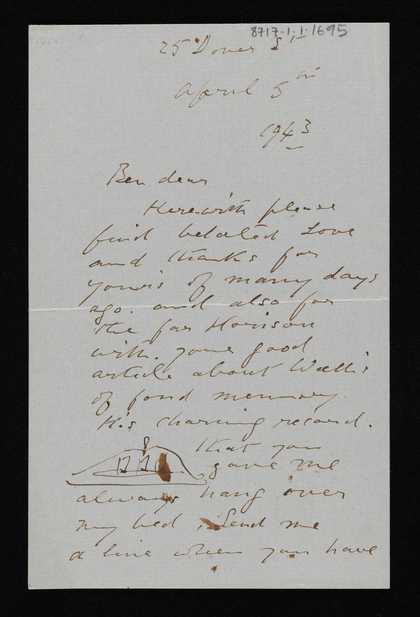 8717·1·1·1695
25 Dover St
April 5th
1943
Ben dear
Herewith please
find belated Love
and thanks for
yours of many days
ago. and also for
the far Horison
with your good
article about Wallis
of fond memory.
His charming record.
that you
gave me
always hang over
my bed. Send me
a line when you have